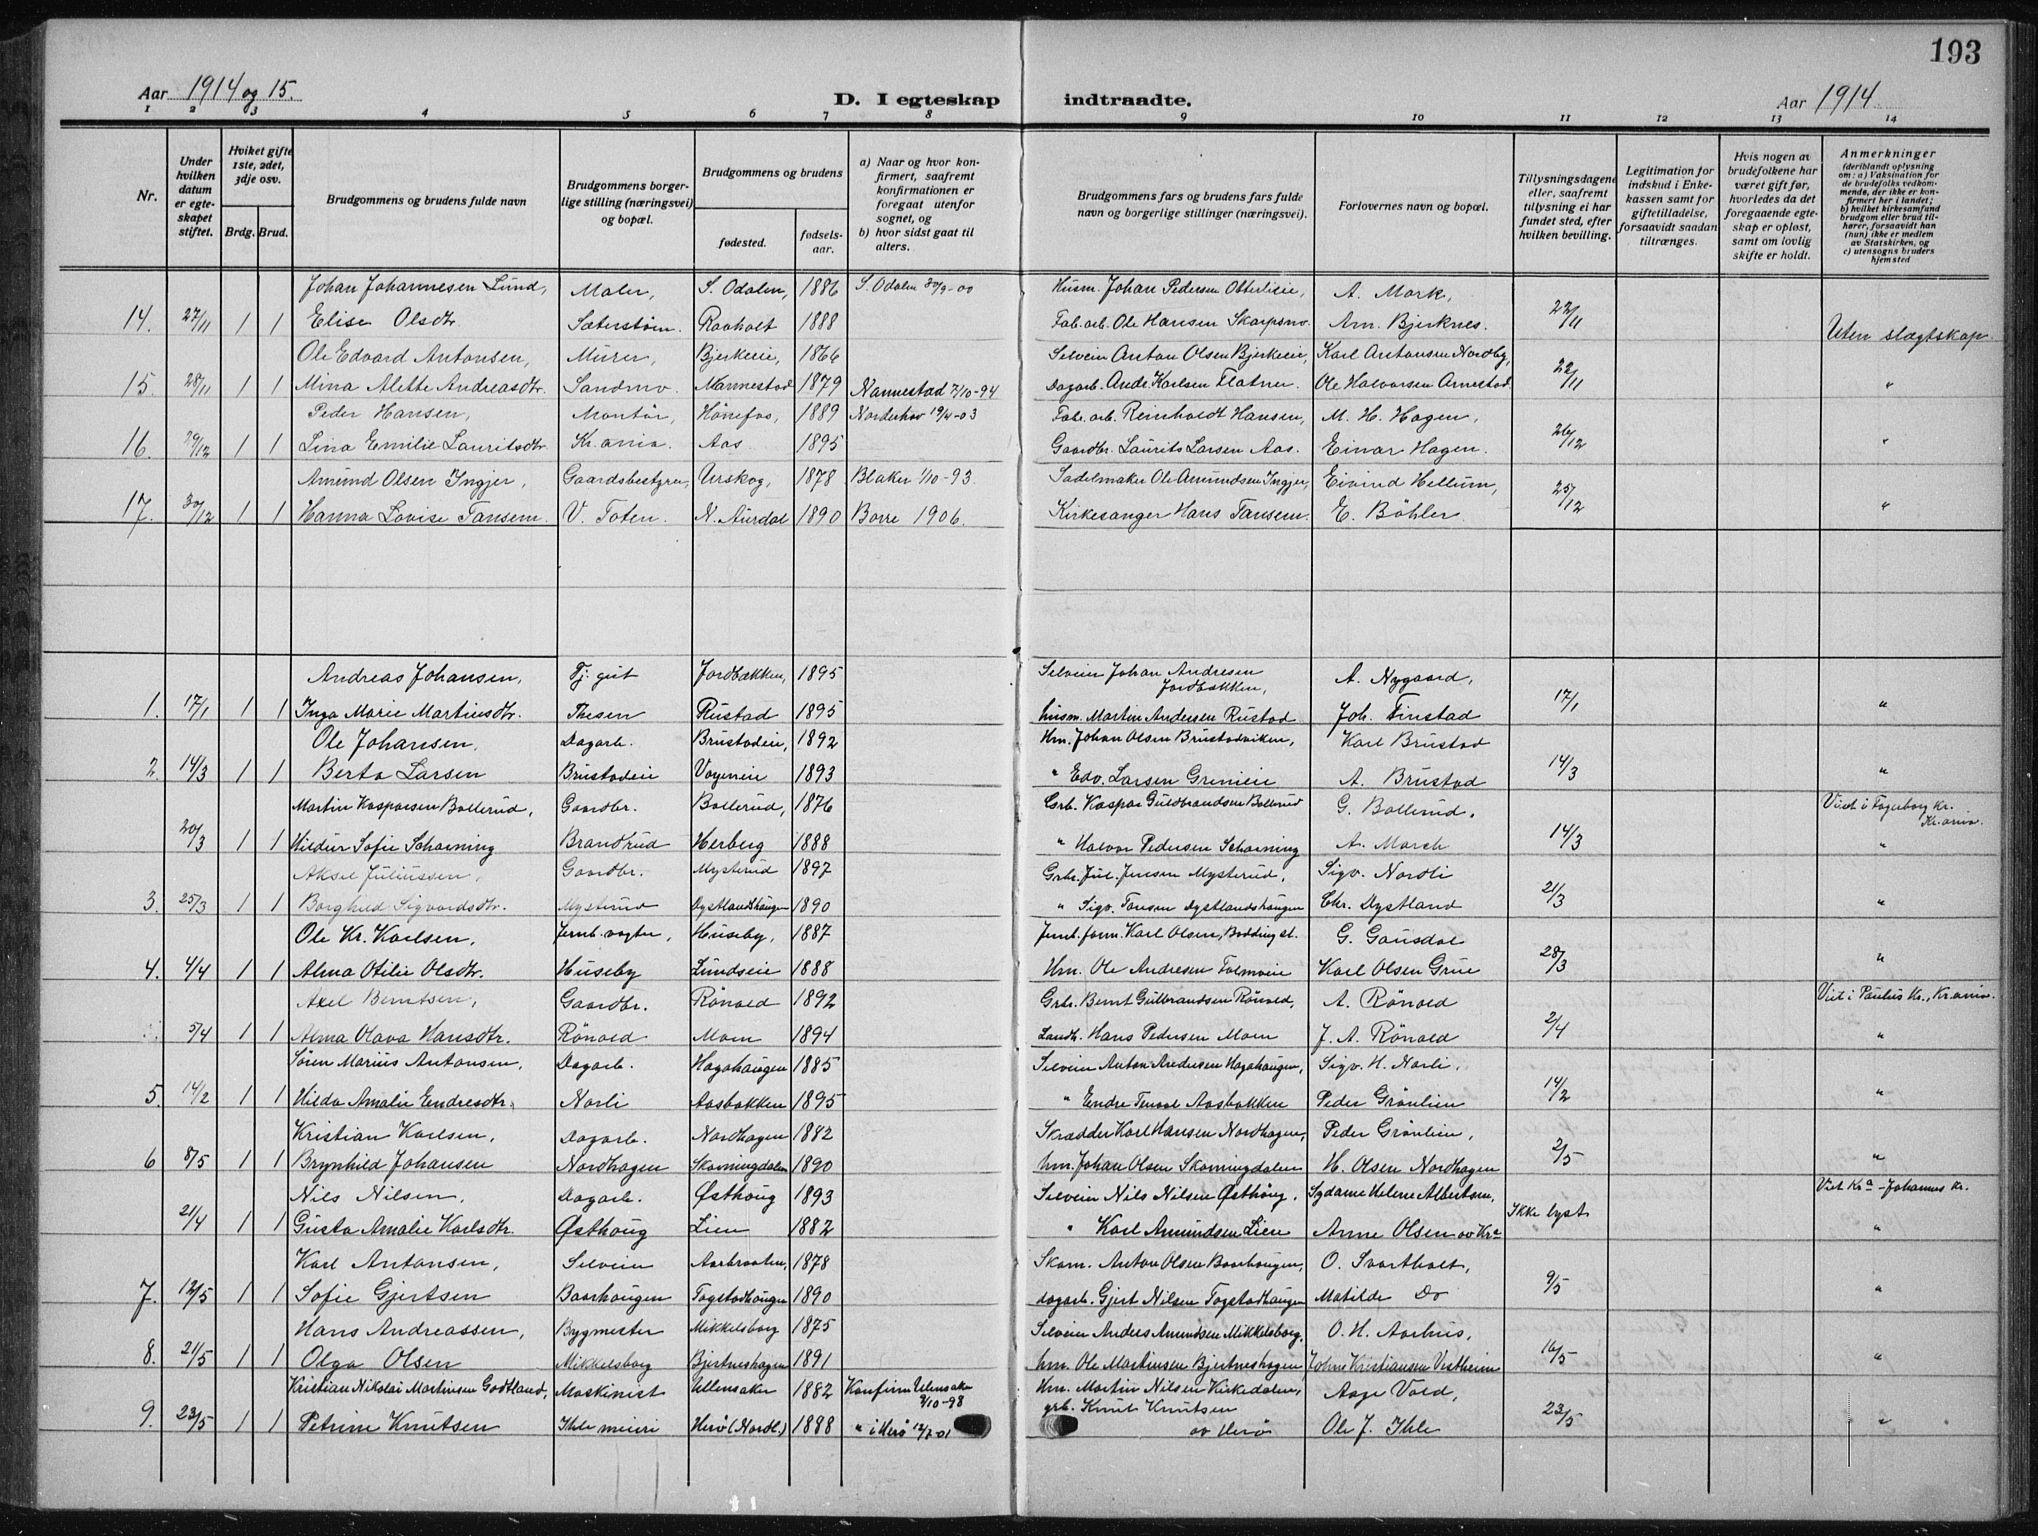 193
Aar 1914 og 15.
D. I egteskap indtraadte.
Aar 1914
1 2 3 4 5 6 7 8 9 10 11 12 13 14
Nr.
Under hvilken datum er egteskapet stiftet.
Hviket gifte 1ste, 2det, 3dje osv.
Brdg. Brud.
Brudgommens og brudens fulde navn
Brudgommens borgerlige stilling (næringsvei) og bopæl.
Brudgommens og brudens
fødested.
fødselsaar.
a) Naar og hvor konfirmert, saafremt konfirmationen er foregaat utenfor sognet, og
b) hvor sidst gaat til alters.
Brudgommens fars og brudens fars fulde navn og borgerlige stillinger (næringsvei).
Forlovernes navn og bopæl.
Tillysningsdagene eller, saafremt tillysning ei har fundet sted, efter hvilken bevilling.
Legitimation for indskud i Enkekassen samt for giftetilladelse, forsaavidt saadan tiltrænges.
Hvis nogen av brudefolkene har været gift før, hvorledes da det foregaaende egteskap er opløst, samt om lovlig skifte er holdt.
Anmerkninger
(deriblandt oplysning om: a) Vaksination for de brudefolks vedkommende, der ikke er konfirmert her i landet; b) hvilket kirkesamfund brudgom eller brud tilhører, forsaavidt han (hun) ikke er medlem av Statskirken, og c) utensogns bruders hjemsted
Johan Johannesen Lund, Maler, S. Odalen, 1886 S. Odalen 30/9-00 Husm. Johan Pedersen Otterlieie, A. Mork,
14. 27/11 1 1 Elise Olsdtr Sæterstøen. Raaholt 1888 Fab. arb. Ole Hansen Skarpsno. Am. Bjerknes. 22/11 Uten slægtskap.
Ole Edvard Antonsen, Murer, Bjerkeie, 1866 Selveier Anton Olsen Bjerkeie, Karl Antonsen Nordby,
15. 28/11 1 1 Mina Alette Andreasdtr. Sandmo. Nannestad 1879 Nannestad 7/10-94 Dagarb. Andr. Karlsen Flatner. Ole Halvorsen Arnestad 22/11 "
Peder Hansen, Montør, Hønefos, 1889 Norderhov 19/4-03 Fabr. arb. Reinholdt Hansen, M. H. Hagen,
16. 29/12 1 1 Lina Emilie Lauritsdtr. Kr.ania. Aas 1895 Gaardbr. Laurits Larsen Aas. Einar Hagen. 26/12 "
Amund Olsen Ingjer, Gaardsbestyrer, Urskog, 1878 Blaker 1/10-93. Sadelmaker Ole Amundsen Ingjer, Eivind Hellum,
17. 30/12 1 1 Hanna Lovise Tansem. V. Toten. N. Aurdal 1890 Borre 1906. Kirkesanger Hans Tansem. E. Bøhler. 25/12 "
Andreas Johansen, Tj. gut Jordbakken, 1895 Selveier Johan Andresen Jordbakken, A. Nygaard,
1. 17/1 1 1 Inga Marie Martinsdtr. Thesen Rustad 1895 husm. Martin Andersen Rustad Joh. Finstad 17/1 "
Ole Johansen, Dagarb. Brustadeie, 1892 Hm. Johan Olsen Brustadviken, Karl Brustad
2. 14/3 1 1 Berta Larsen Brustadeie Vogneie 1893 " Edv. Larsen Grenieie A. Brustad 14/3 "
Martin Kasparsen Bollerud, Gaardbr. Bollerud, 1876 Grb. Kaspar Guldbrandsen Bollerud G. Bollerud. Viet i Fagerborg kr. Kr.ania.
20/3 1 1 Hildur Sofie Schavning Brandrud Herberg 1888 " Halvor Pedersen Schavning A. March 14/3 "
Aksel Juliussen, Gaardbr. Mysterud 1897 Grbr. Jul. Jensen Mysterud, Sigv. Nordli
3. 25/3 1 1 Borghild Sigvardsdtr. Mysterud Dystlandshaugen 1890 " Sigv. Tansen Dystlandshaugen Chr. Dystland 21/3 "
Ole Kr. Karlsen, Jernb. vogter, Huseby, 1887 Jernb. form. Karl Olsen, Bodding st. G. Gausdal
4. 4/4 1 1 Alma Otilie Olsdtr. Huseby Lundseie 1888 Hm. Ole Andresen Tolmseie Karl Olsen Grue 28/3 "
Axel Berntsen, Gaardbr. Rønold 1892 Grb. Bernt Gulbrandsen Rønold, A. Rønold Viet i Paulus Kr., Kr.ania.
5/4 1 1 Alma Olava Hansdtr. Rønold Mom 1894 Landh. Hans Pedersen Mom J. A. Rønold 2/4 "
Søren Marius Antonsen, Dagarb. Hagahaugen 1885 Selveier Anton Andersen Hagahaugen, Sigv. H. Narli,
5. 14/2 1 1 Hilda Amalie Endresdtr. Narli Aasbakken 1895 " Endre Aasbakken Peder Grønlien 14/2 "
Kristian Karlsen, Dagarb. Nordhagen 1882 Skrædder Karl Hansen Nordhagen, Peder Grønlien,
6 8/5 1 1 Brynhild Johansen Nordhagen Skavningdalen 1890 hm. Johan Olsen Skavningdalen H. Olsen Nordhagen 2/5 "
Nils Nilsen, Dagarb. Østhaug 1893 Selveier Nils Nilsen Østhaug, Sydame Helene Albertsen, Viet Kr.a - Johannes kr.
21/4 1 1 Gusta Amalie Karlsdtr. Østhaug Lien 1882 " Karl Amundsen Lien Anne Olsen av Kr.a Ikke lyst "
Karl Antonsen, Selveier Aarbraaten, 1878 Skom. Anton Olsen Baarhaugen, O. Svartholt,
7. 12/5 1 1 Sofie Gjertsen Baarhaugen Togstadhaugen 1890 dagarb. Gjert Nilsen Togstadhaugen Matilde Do 9/5 "
Hans Andreassen, Bygmester Mikkelsborg 1875 Selveier Anders Amundsen Mikkelsborg, O. H. Aarhus,
8. 21/5 1 1 Olga Olsen Mikkelsborg Bjertneshagen 1891 hm. Ole Martinsen Bjertneshagen Johne Kristiansen Vestheim 16/5 "
Kristian Nikolai Martinsen Godtland, Maskinist Ullensaker 1882 Konfirm. Ullensaker 9/10-98 Hm. Martin Nilsen Kirkedalen, Aage Vold,
9. 23/5 1 1 Petrine Knutsen Ihle meieri Herø (Nordl.) 1888 " i Herø 12/7-01 grb. Knut Knutsen av Herø Ole J. Ihle 23/5 "